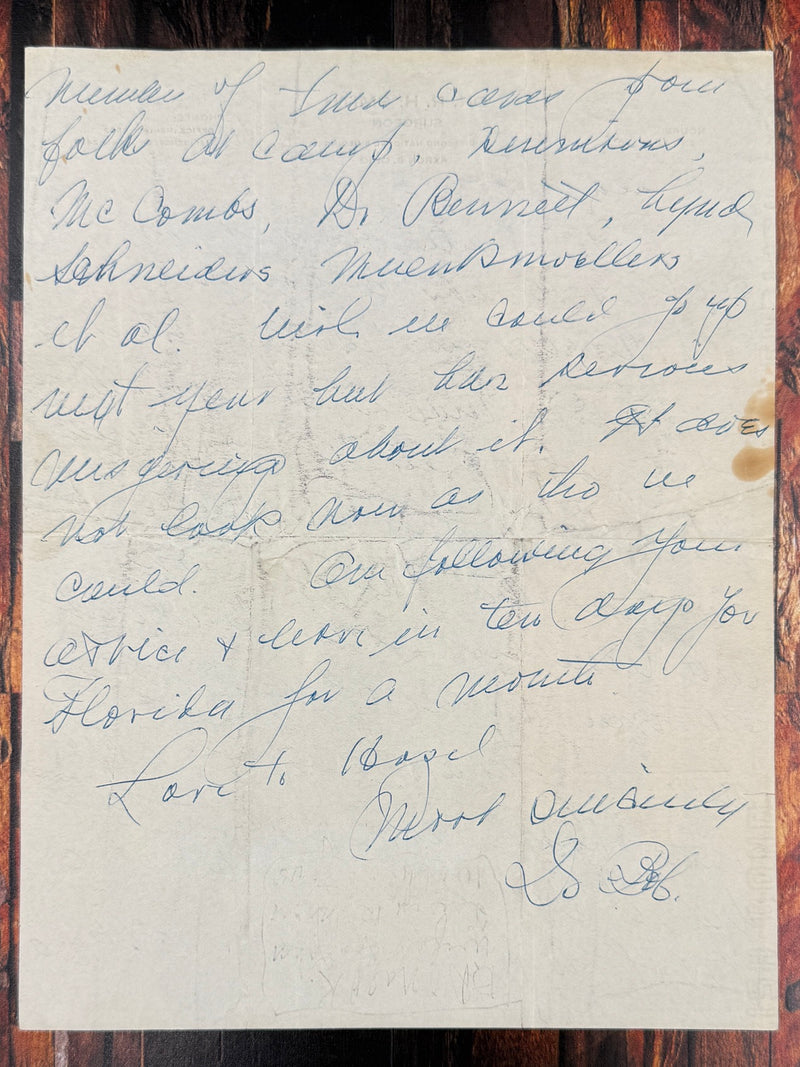 number of Xmas cards from
folks at camp,
McCombs, Dr. Bennett, Lynd,
Schneiders Muenkmoellers
et al. Wish we could go up
next year but have serious
misgivings about it. It does
not look now as tho we
could. Am following your
advice & leave in ten days for
Florida for a month
Love to Hazel
Most sincerely
Dr Bob.